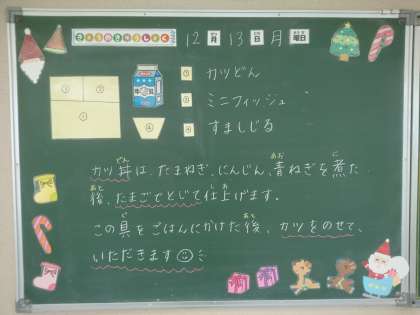 きょうのきゅうしょく
12月13日月曜日
カツどん
ミニフィッシュ
すましじる
カツ丼は、たまねぎ、にんじん、青ねぎを煮た
後、たまごでとじて仕上げます。
この具をごはんにかけた後、カツをのせて、
いただきます